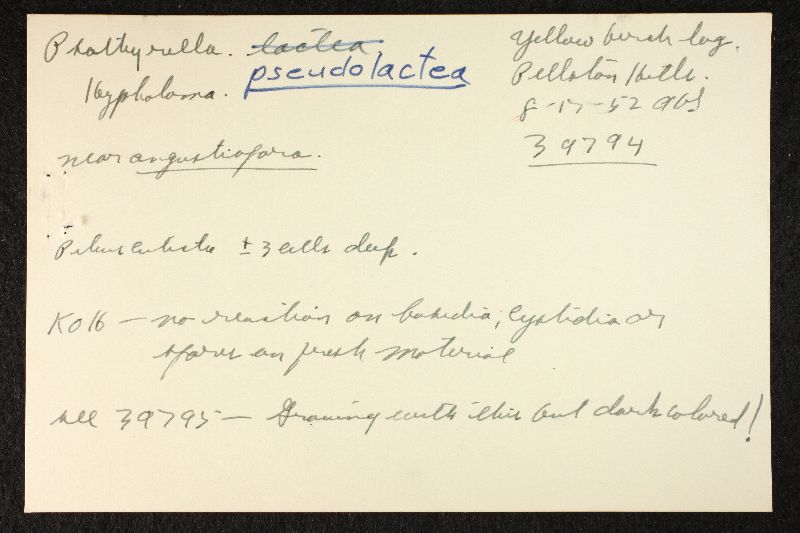 Psathyrella. lactea,
pseudolactea
Hypholoma.
Yellow birch log.
Pellston Hills.
8-17-52 AHS
39794
near angustispora.
Pileus cuticle ± 3 cells deep.
KOH – no reaction on basidia, cystidia or
spores on fresh material
see 39795 – Growing with this but dark colored!